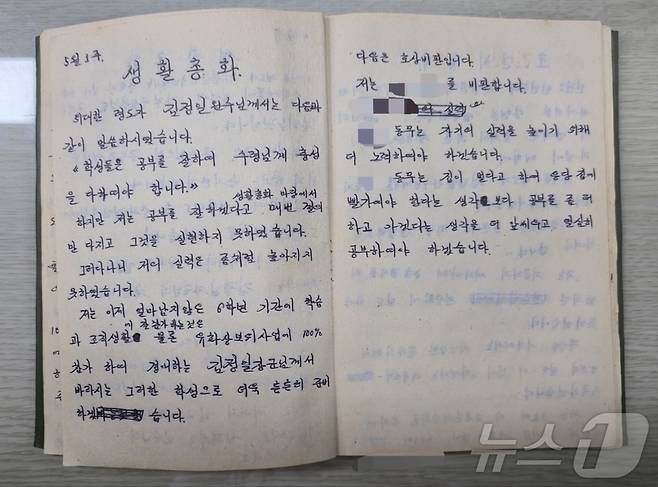 5월 1주.
생활총화.
위대한 령도자 김정일원수님께서는 다음과
같이 말씀하시였습니다.
《학생들은 공부를 잘하여 수령님께 충성
을 다하여야 합니다.》
생활총화 마당에서
하지만 저는 공부를 잘하겠다고 매번 결의
만 다지고 그것을 실현하지 못하였습니다.
그러다나니 저의 실력은 높아지지
못하였습니다.
저는 이제 얼마남지않은 6학년 기간에 학습
에 잘 참가하는것은
과 조직생활 물론 우상보위사업에 100%
참가 하여 경애하는 김정일장군님께서
바라시는 그러한 학생으로 더욱 튼튼히 준비
하겠습니다.
다음은 호상비판입니다.
저는 를 비판합니다.
동무는 자기의 실력을 높이기 위해
더 노력하여야 하겠습니다.
동무는 집이 멀다고 하여 순당 집에
빨가여야 한다는 생각보다 공부를 좀 더
하고 가겠다는 생각을 더 앞세우고 열심히
공부하여야 하겠습니다.
뉴스1